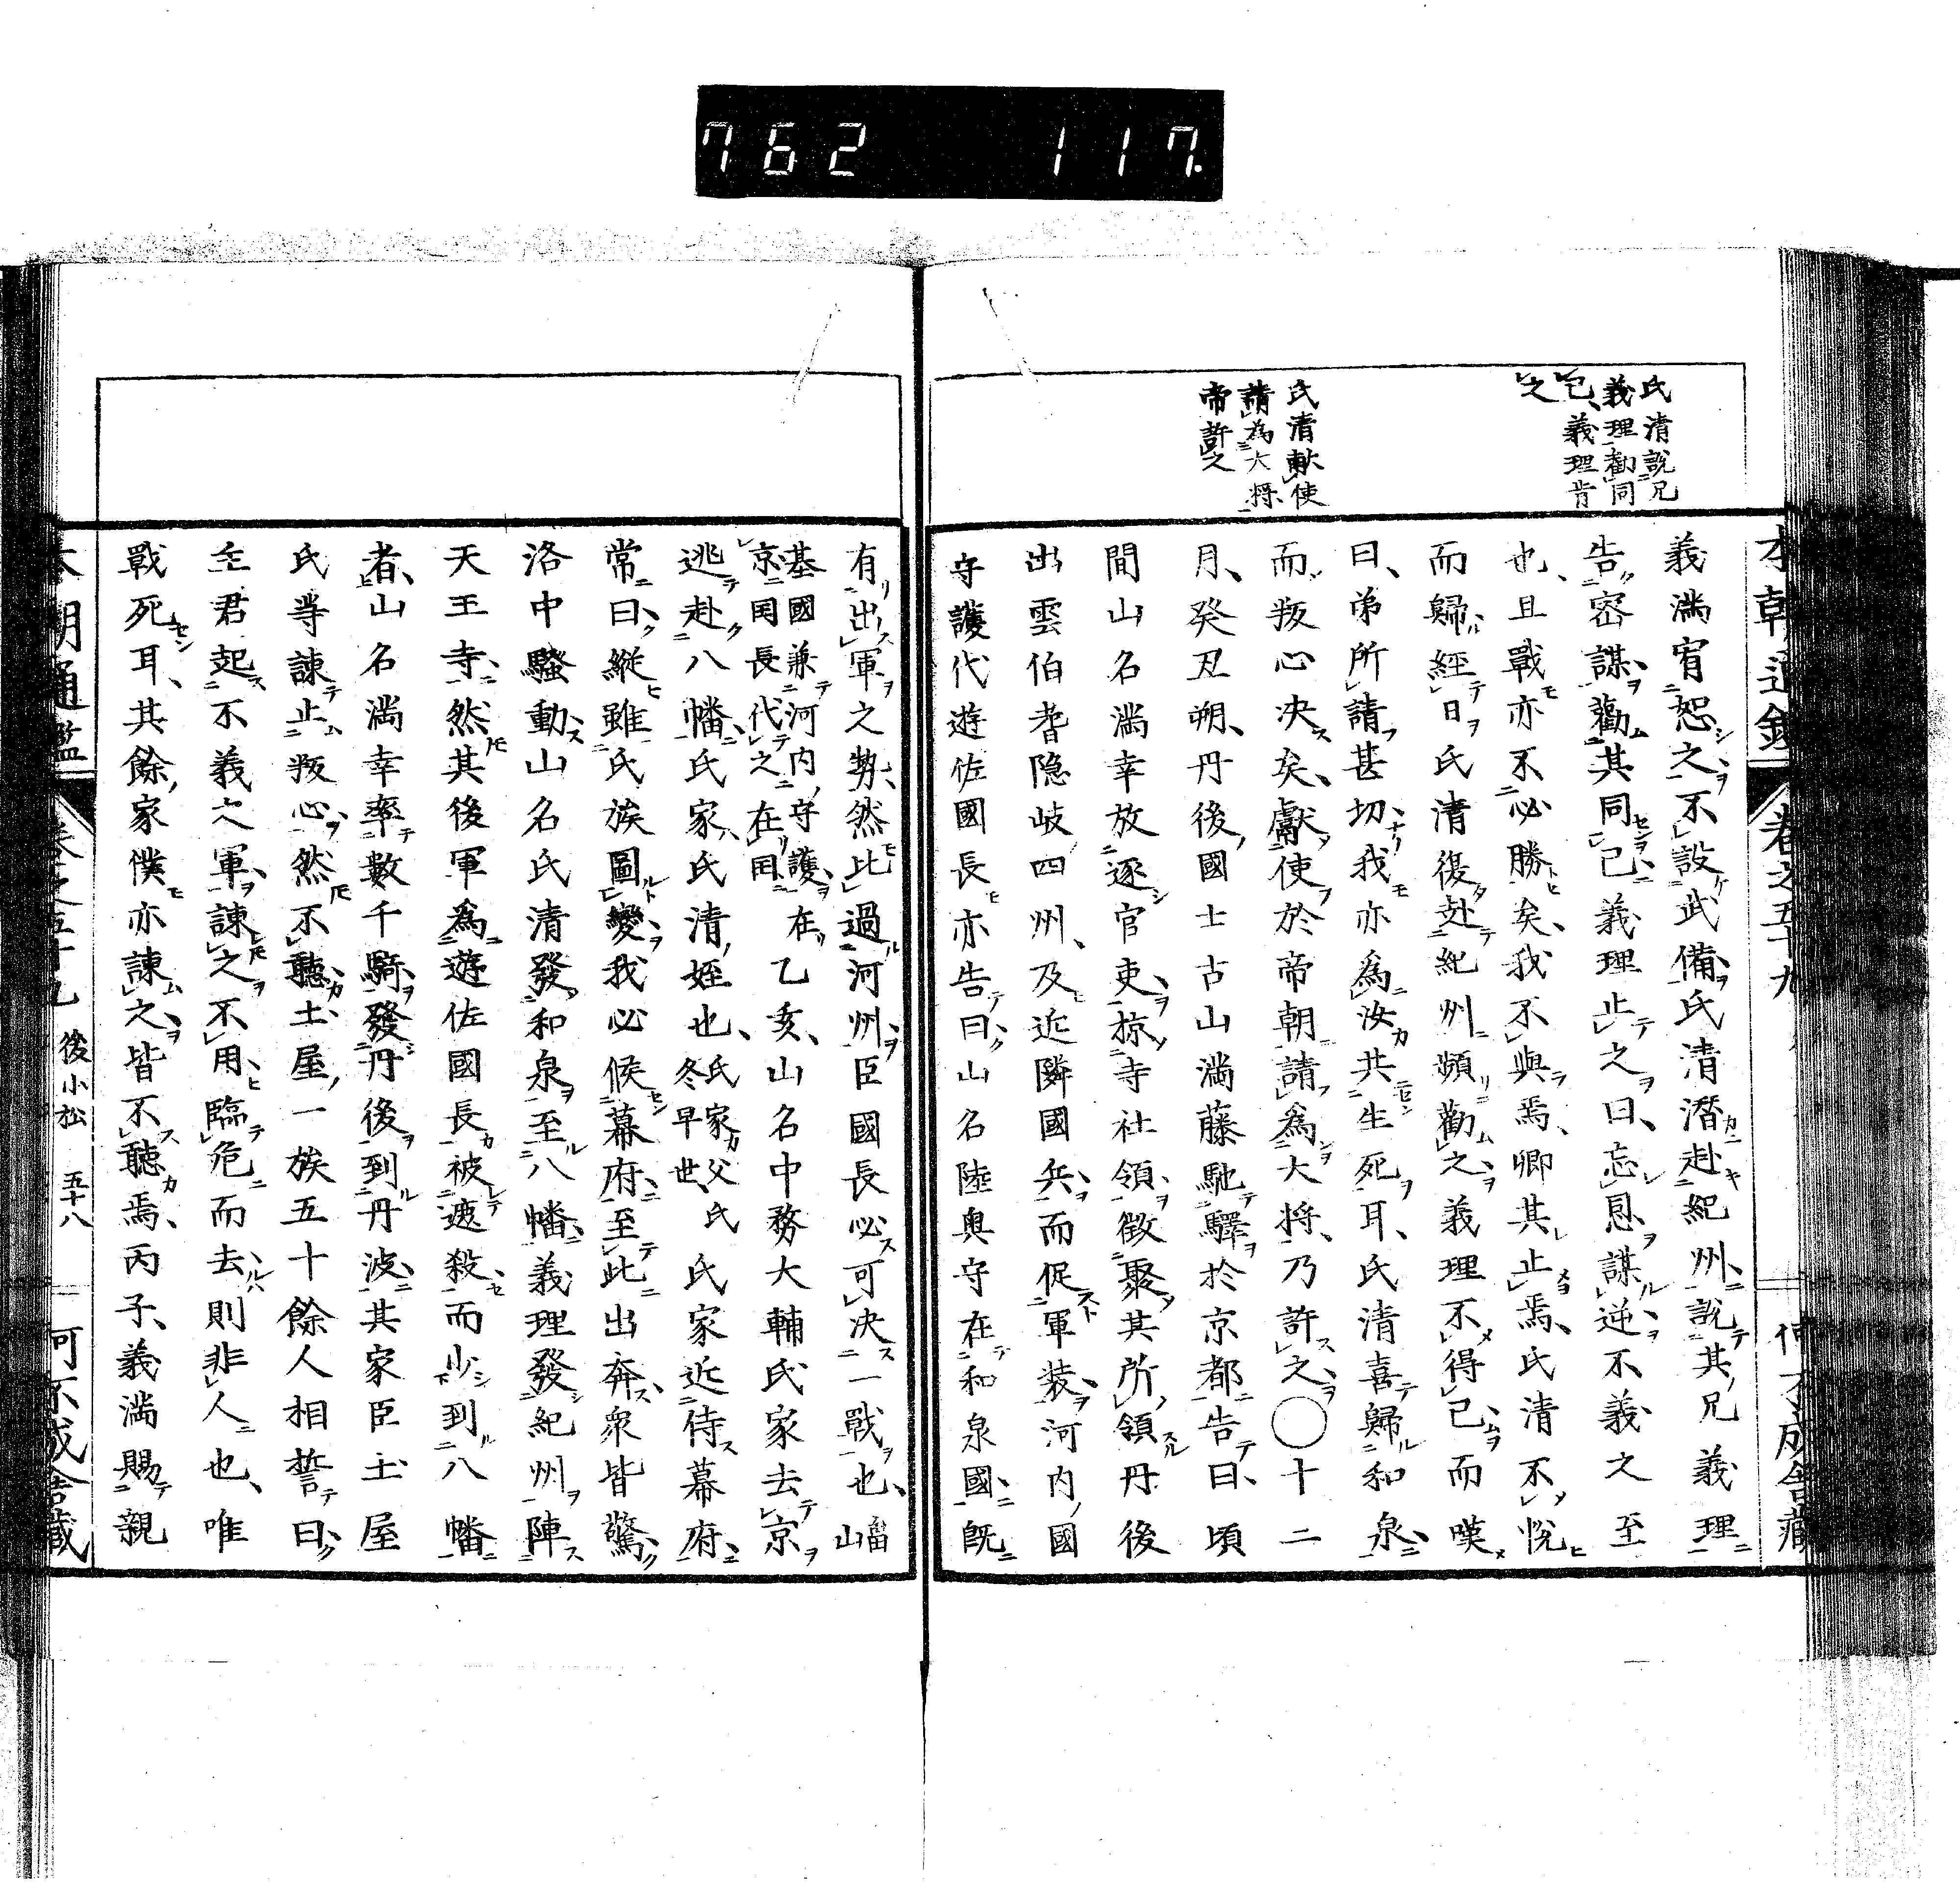 762 117.
本朝通鑑 卷之五十九
氏清說兄
義理勸同
己、義理肯
之
氏清献使
請為大將、
帝許之
義滿宥恕之不設武備氏清潛赴紀州說其兄義理
告密謀勸其同己義理止之曰、忘恩謀逆不義之至
也、且戰亦不必勝矣、我不與焉、卿其止焉、氏清不悅
而歸經日氏清復赴紀州頻勸之義理不得已而嘆
曰、弟所請甚切我亦為汝共生死耳、氏清喜歸和泉
而叛心决矣、獻使於帝朝請為大將、乃許之○十二
月、癸丑朔、丹後國士古山滿藤馳驛於京都告曰、頃
間山名滿幸放逐官吏掠寺社領徵聚其所領丹後
出雲伯耆隠岐四州、及近隣國兵而促軍裝河内國
守護代遊佐國長亦告曰山名陸奥守在和泉國既
有出軍之勢、然比過河州臣國長必可决一戰也、畠山
基國兼河内守護在京国長代之在国 在乙亥、山名中務大輔氏家去京
逃赴八幡氏家氏清姪也、氏家父氏冬早世、氏家近侍幕府
常曰縱雖氏族圖變我必候幕府至此出奔衆皆驚
洛中騷動山名氏清發和泉至八幡義理發紀州陣
天王寺然其後軍爲遊佐國長被遮殺而少到八幡
者、山名滿幸率數千騎發丹後到丹波其家臣土屋
氏等諫止叛心然不聽土屋一族五十餘人相誓曰
主君起不義之軍諫之不用臨危而去則非人也、唯
戰死耳、其餘家僕亦諫之皆不聽焉、丙子、義滿賜親
本朝通鑑 卷之五十九 後小松 五十八